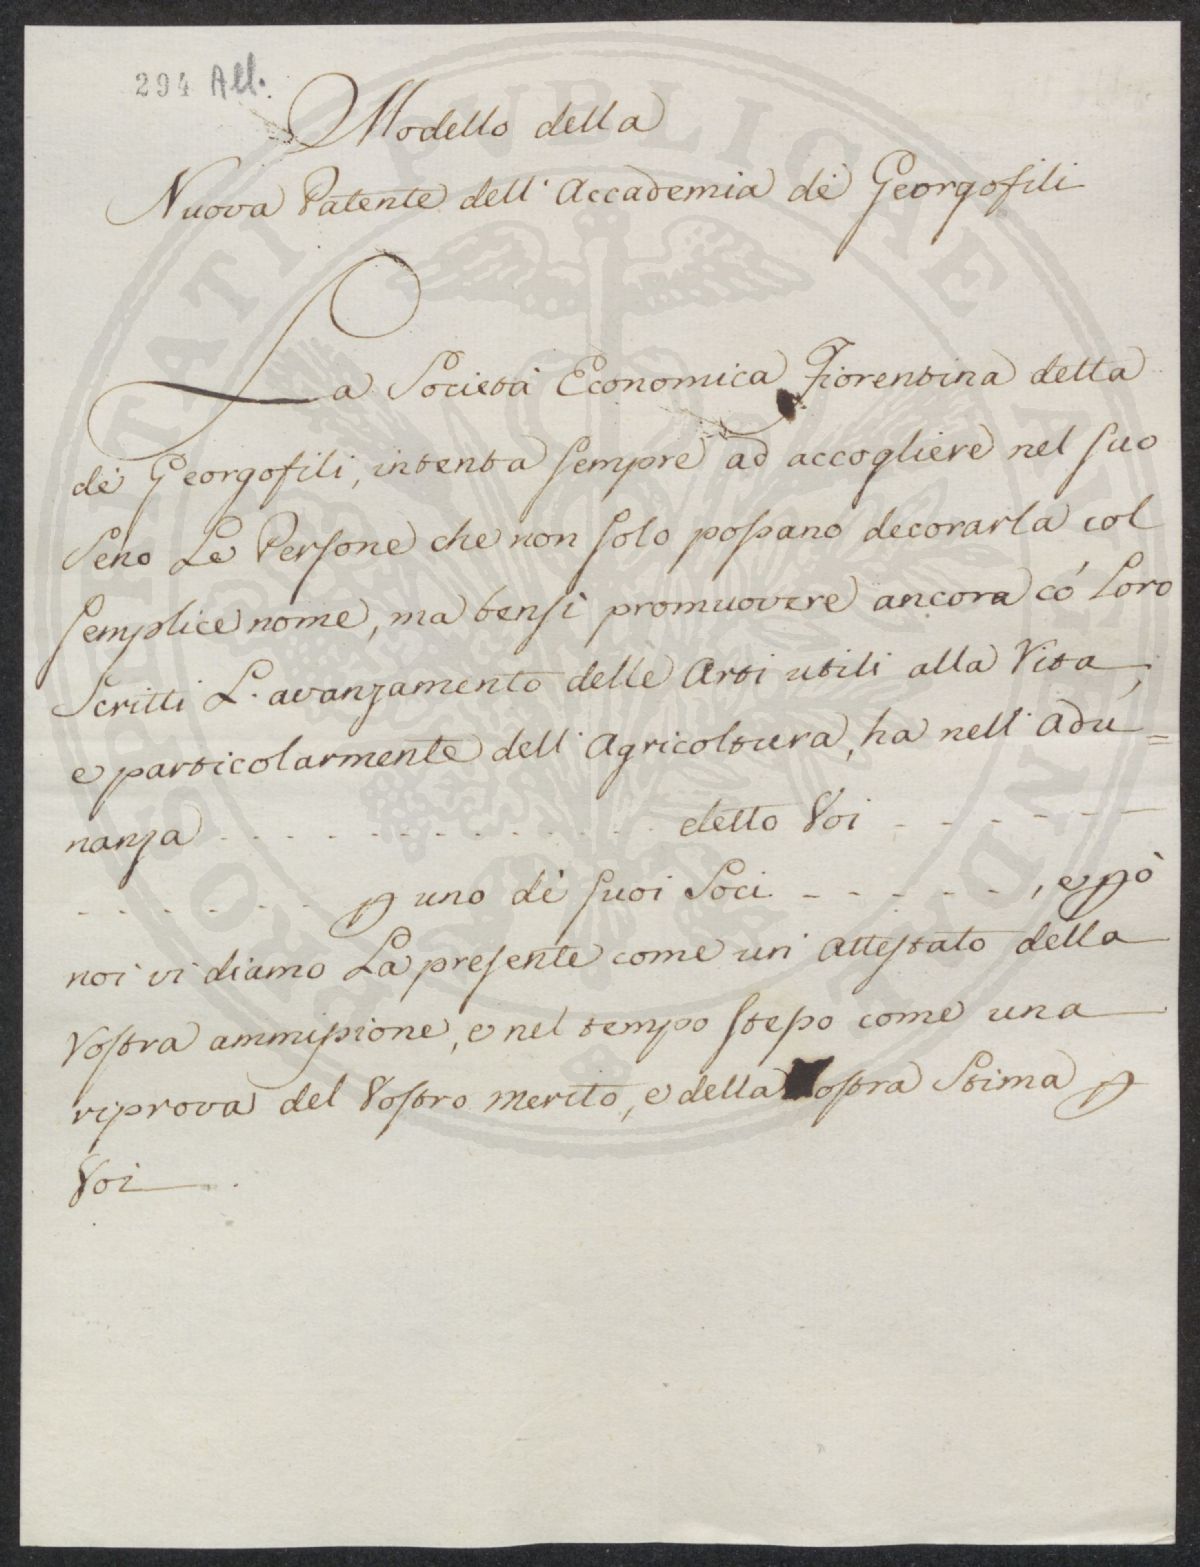 294 All.
Modello della
Nuova Patente dell'Accademia de Georgofili
La Società Economica Fiorentina detta
de Georgofili, intenta sempre ad accogliere nel suo
Seno Le Persone che non solo possano decorarla col
semplice nome, ma bensì promuovere ancora có Loro
Scritti L'avanzamento delle Arti utili alla Vita,
e particolarmente dell'Agricoltura, ha nell'Adu=
nanza . . . . . . . . . . . . . . . . eletto Voi - - - - - - -
- - - - - - - p uno dè suoi Soci - - - - - - , e pò
noi vi diamo La presente come un' attestato della
Vostra ammissione, e nel tempo stesso come una
riprova del Vostro merito, e della Nostra Stima p
Voi.
PROSPERITATI PUBLICAE AUGENDAE